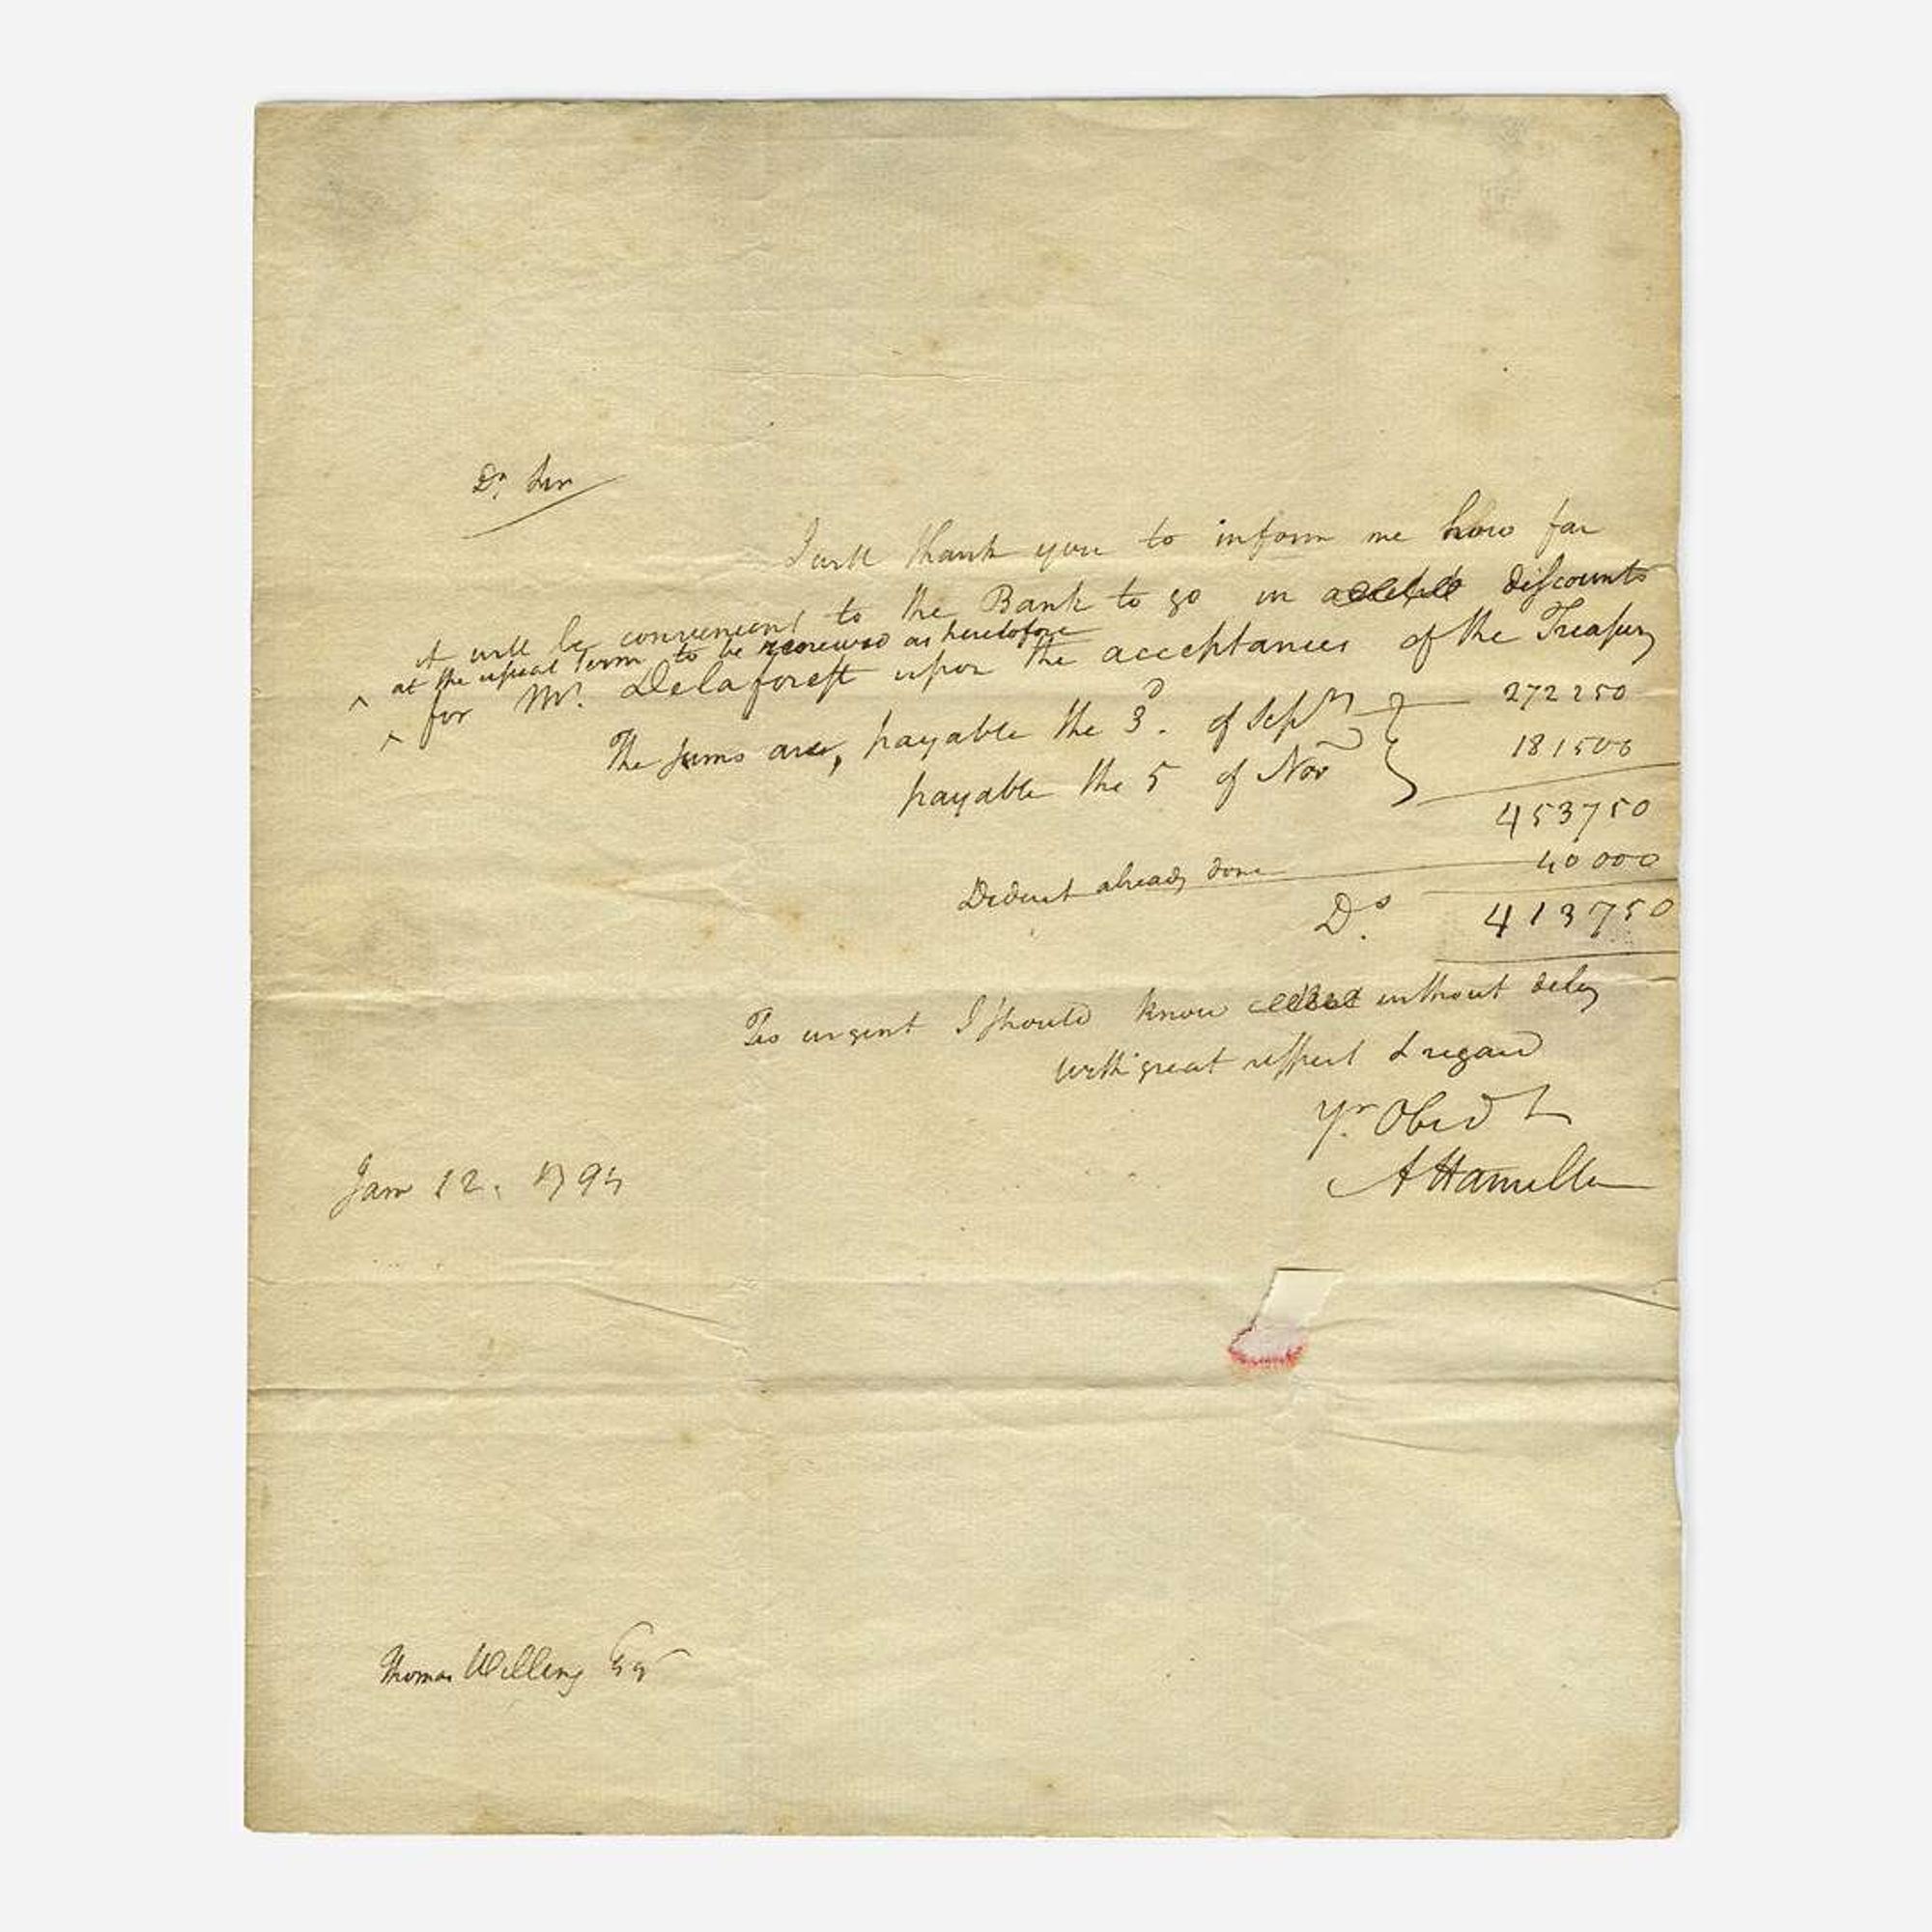 Dr. Sir
I will thank you to inform me how far
it will be convenient to the Bank to go in discounts
at the usual term to be renewed as heretofore
for Mr. Delaforest upon the acceptances of the Treasury
The sums are, payable the 3d. of Sepr 272250
payable the 5 of Novr 181500
453750
Deduct already done 40000
Ds. 413750
Tis urgent I should know without delay
with great respect & regard
Yr. Obedt
A Hamilton
Jan 12. 1794
Thomas Willing Esqr